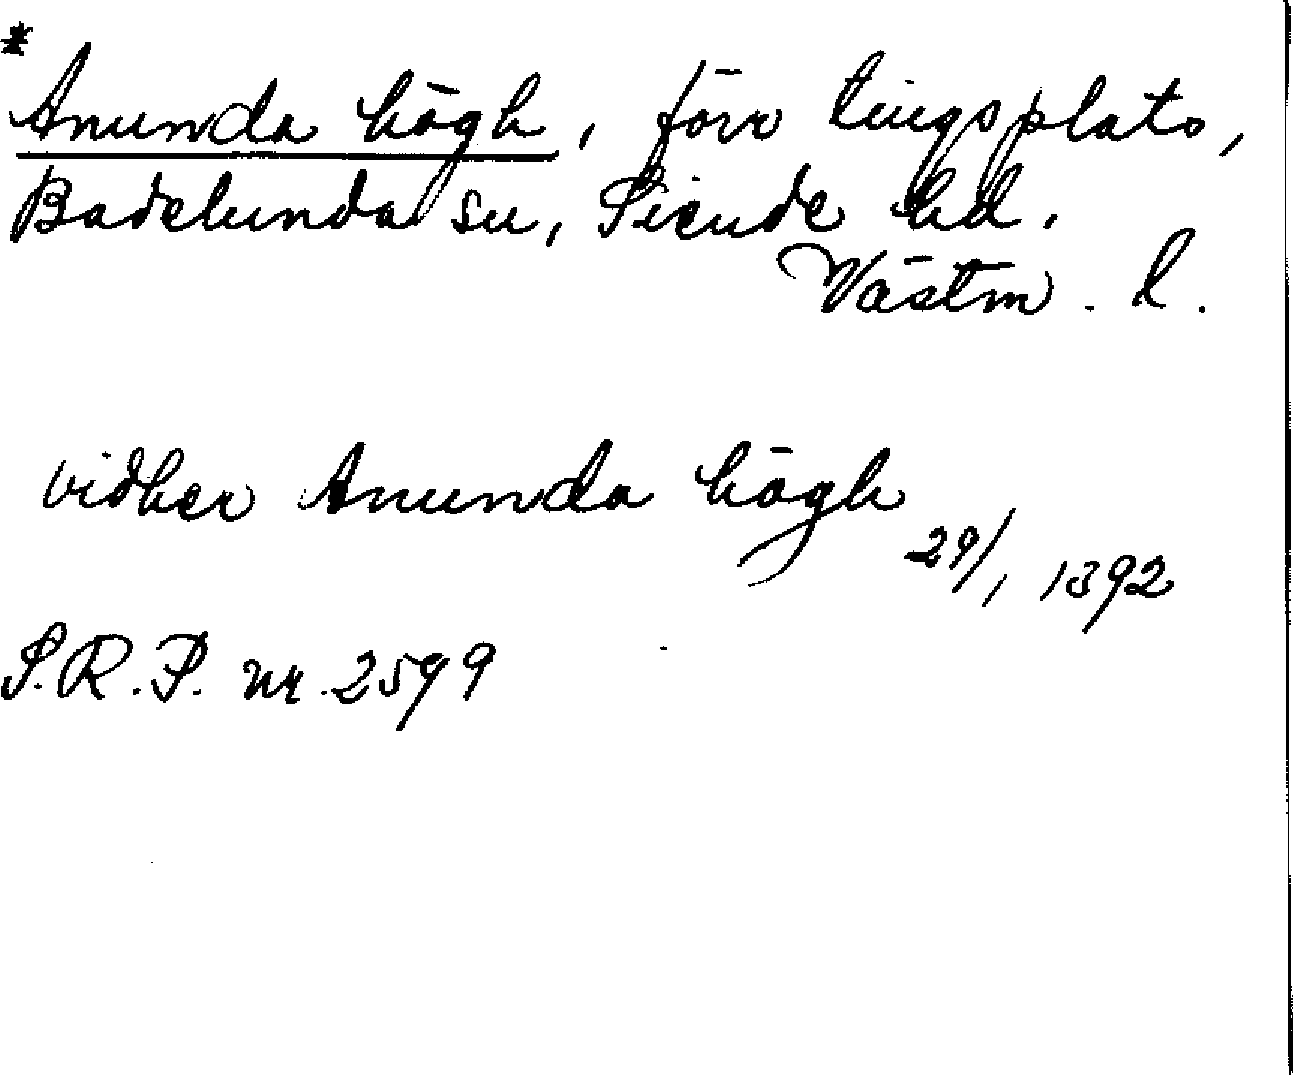 *
Anunda högh, förr tingsplats,
Badelunda sn, Siende hd.
Västm. l.
vidher Anunda högh
29/1 1392
S.R.P. nr. 2599